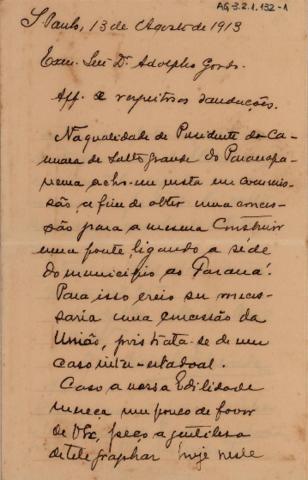 AG.3.2.1.132-1
S. Paulo, 13 de Agosto de 1913
Exm. Snr. Dr. Adolpho Gordo.
Aff. e respeitosas saudações.
Na qualidade de Presidente da Ca-
mara de Salto Grande do Paranapa-
nema acho-me nesta em commis-
são, a fim de obter uma conces-
são para a mesma construir
uma ponte, ligando a séde
do municipio ao Paraná.
Para isso creio ser neces-
saria uma concessão da
União, pois trata-se de um
caso inter-estadoal.
Caso a nossa Edilidade
mereça um pouco de favor
de V. Ex., peço a gentilesa
de telegraphar hoje neste